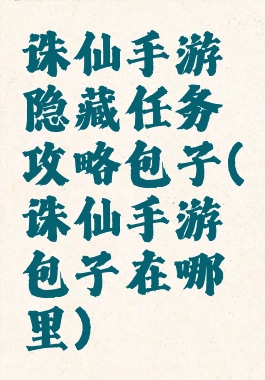 诛仙手游
隐藏任务
攻略包子(
诛仙手游
包子在哪
里)